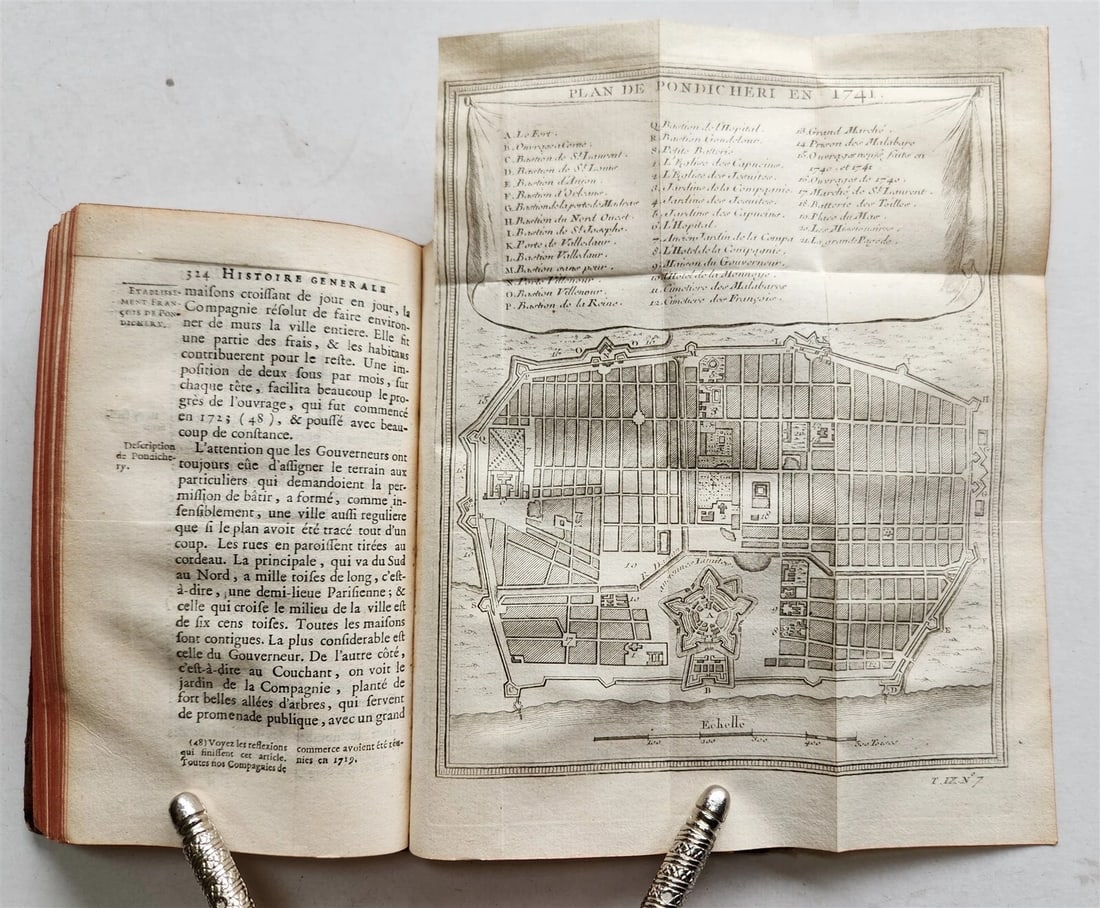 324 HISTOIRE GENERALE
ETABLISSE-
MENT FRAN-
ÇOIS DE PON-
DICHERY.
maisons croissant de jour en jour, la
Compagnie résolut de faire environ-
ner de murs la ville entiere. Elle fit
une partie des frais, & les habitans
contribuerent pour le reste. Une im-
position de deux sous par mois, sur
chaque tête, facilita beaucoup le pro-
grès de l'ouvrage, qui fut commencé
en 1723 (48), & poussé avec beau-
coup de constance.
Description
de Pondiche-
ry.
L'attention que les Gouverneurs ont
toujours eûe d'assigner le terrain aux
particuliers qui demandoient la per-
mission de bâtir, a formé, comme in-
sensiblement, une ville aussi reguliere
que si le plan avoit été tracé tout d'un
coup. Les rues en paroissent tirées au
cordeau. La principale, qui va du Sud
au Nord, a mille toises de long, c'est-
à-dire, une demi-lieue Parisienne; &
celle qui croise le milieu de la ville est
de six cens toises. Toutes les maisons
sont contigues. La plus considerable est
celle du Gouverneur. De l'autre côté,
c'est-à-dire au Couchant, on voit le
jardin de la Compagnie, planté de
fort belles allées d'arbres, qui servent
de promenade publique, avec un grand
(48) Voyez les reflexions
qui finissent cet article.
Toutes nos Compagnies de
commerce avoient été réu-
nies en 1719.
PLAN DE PONDICHERI EN 1741.
A. Le Fort.
B. Ouvrage a Corne.
C. Bastion de St. Laurent.
D. Bastion de St. Louis
E. Bastion d'Anjou.
F. Bastion d'Orleans.
G. Bastion de la porte de Madras
H. Bastion du Nord Ouest.
I. Bastion de St. Josephe.
K. Porte de Valledaur.
L. Bastion Valledaur.
M. Bastion sans peur.
N. Porte Villenour.
O. Bastion Villenour.
P. Bastion de la Reine.
Q. Bastion de l'Hopital.
R. Bastion Goudelour.
S. Petite Batterie.
1. L'Eglise des Capucins.
2. L'Eglise des Jesuites.
3. Jardins de la Compagnie.
4. Jardins des Jesuites.
5. Jardins des Capucins.
6. L'Hopital.
7. Ancien Jardin de la Compa
8. L'Hotel de la Compagnie.
9. Maison du Gouverneur.
10. Hotel de la Monnoye.
11. Cimetiere des Malabares
12. Cimetiere des François.
13. Grand Marché.
14. Prison des Malabars
15. Ouvrages neufs, faits en
1740. et 1741
16. Ouvrages de 1740.
17. Marché de St. Laurent.
18. Batterie des Tailles.
19. Place du Mas.
20. Les Missionaires.
21. La grande Pagode.
Anciennes Limites
Echelle
100 200 300 400 500 Toises
T. IX. No. 7